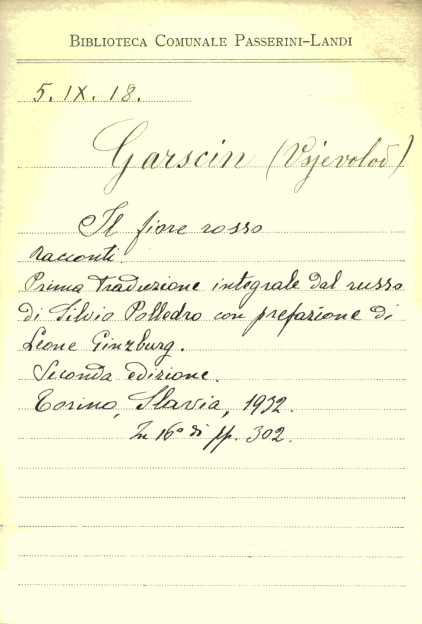 BIBLIOTECA COMUNALE PASSERINI-LANDI
5. IX. 18.
Garscin (Vsjevolod)
Il fiore rosso
Racconti
Prima traduzione integrale dal russo
di Silvio Polledro con prefazione di
Leone Ginzburg.
Seconda edizione.
Torino, Slavia, 1932.
In 16° di pp. 302.